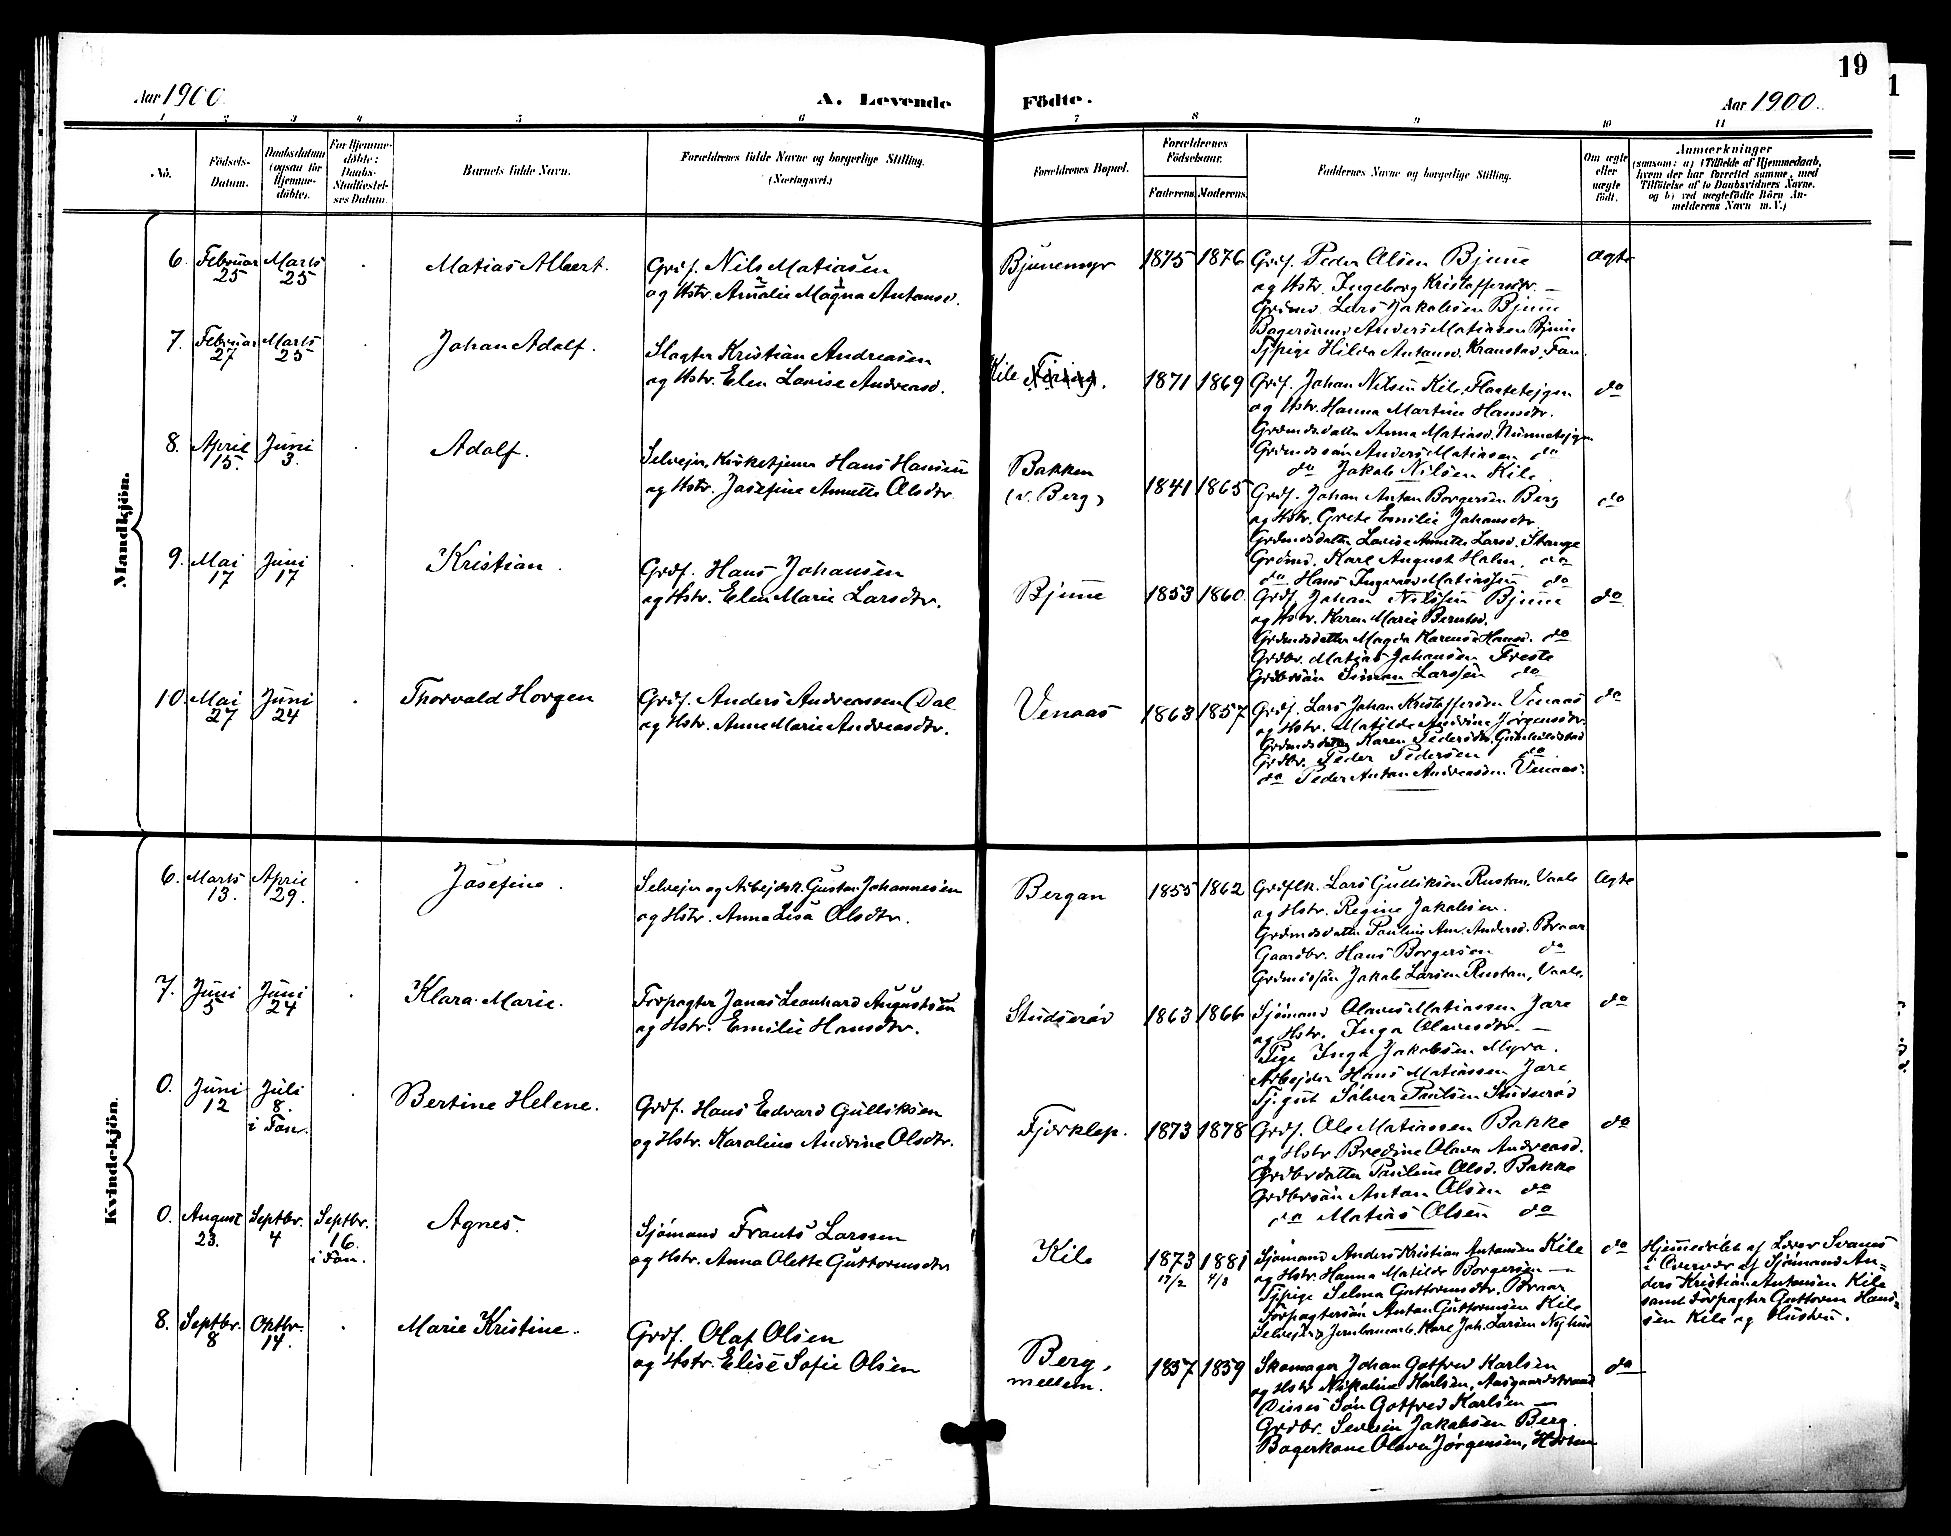 19
Aar 1900.
A. Levende
Födte.
Aar 1900.
1 2 3 4 5 6 7 8 9 10 11
No.
Födsels-
Datum.
Daabsdatum
(ogsaa for
Hjemme-
döbte).
For Hjemme-
döbte:
Daabs-
Stadfæstel-
ses Datum.
Barnets fulde Navn.
Forældrenes fulde Navne og borgerlige Stilling.
(Næringsvei.)
Forældrenes Bopæl.
Forældrenes
Födselsaar.
Faderens.
Moderens.
Faddernes Navne og borgerlige Stilling.
Om ægte
eller
uægte
födt.
Anmærkninger
(saasom: a) i Tilfælde af Hjemmedaab,
hvem der har forrettet samme, med
Tilföielse af to Daabsvidners Navne.
og b) ved uægtefödte Börn An-
melderens Navn m. V.)
Mandkjön.
6. Februar 25 Marts 25 Matias Albert.
Grdf. Nils Matiasen
og Hstr. Amalie Magna Antonsd.
Bjunemyr 1875 1876
Grdf. Peder Olsen Bjune
og Hstr. Ingeborg Kristoffersdr. —
Grdmd. Lars Jakobsen Bjune
Bagersvend Anders Matiasen Bjune
Tjpige Hilda Antonsd. Kranstad, Fon.
ægte
7. Februar 27 Marts 25 Johan Adolf.
Slagter Kristian Andreasen
og Hstr. Elen Lovise Andreasd.
Kile 1871 1869
Grdf. Johan Nilsen Kile, Flaatetejgen
og Hstr. Hanna Martine Hansdtr.
Grdmdsdatter Anna Matiasd. Nunnetejgen
Grdmdssön Anders Matiassen do
do Jakob Nilsen Kile.
do
8. April 15 Juni 3. Adolf.
Selvejer, Kirketjener Hans Hansen
og Hstr. Josefine Annette Olsdtr.
Bakken
(v. Berg) 1841 1865
Grdf. Johan Anton Borgersen Berg
og Hstr. Grete Emilie Johansdtr
Grdmdsdatter Lovise Annette Larsd. Stange
Grdmd. Karl August Holm, do
do Hans Ingvald Matiassen do
do
9. Mai 17 Juni 17 Kristian.
Grdf. Hans Johansen
og Hstr. Elen Marie Larsdtr.
Bjune 1853 1860
Grdf. Johan Nilssen Bjune
og Hstr. Karen Marie Berntsd.
Grdmdsdatter Magda Karense Hansd. do
Grdbr. Matias Johansen Freste
Grdbrsön Simon Larssen do
do
10. Mai 27 Juni 24 Thorvald Horgen
Grdf. Anders Andreassen (Dal
og Hstr. Anne Marie Andreasdtr.
Venaas 1863 1857
Grdf. Lars Johan Kristoffersen Venaas
og Hstr. Matilde Andrine Jørgensdtr.
Grdmdsdatter Karen Pedersdtr. Gunhildstad
Grdbr. Peder Pedersen do
do Peder Anton Andreassen Venaas.
do
Kvindekjön.
6. Marts 13. April 29. Josefine.
Selvejer og Arbejdsk. Gustav Johannesen
og Hstr. Anna Lisa Olsdtr.
Bergan 1855 1862
Grdflk. Lars Gulliksen Rustan, Vaale
og Hstr. Regine Jakobsen.
Grdmdsdatter Pauline Am. Andersd. Braar
Gaardbr. Hans Borgersen do
Grdmdssön Jakob Larsen Rustan, Vaale.
Ægte
7. Juni 5 Juni 24 Klara Marie.
Forpagter Jonas Leonhard Augustsen
og Hstr. Emilie Hansdtr.
Studserød 1863 1866
Sjømand Olaves Matiassen Jare
og Hstr. Inga Olavesdtr. —
Pige Inga Jakobsen Myra.
Arbejder Hans Matiassen Jare
Tj.gut Sølver Paulsen Studserød
do
0. Juni 12 Juli 8. i Fon. Bertine Helene.
Grdf. Hans Edvard Gulliksen
og Hstr. Karoline Andrine Olsdtr.
Fjerklep. 1873 1878
Grdf. Ole Matiassen Bakke
og Hstr. Bredine Olava Andreasd.
Grdbrdatter Pauline Olsd. Bakke
Grdbrsön Anton Olsen do
do Matias Olsen do
do
0. August 23. Septbr. 4 Septbr. 16. i Fon. Agnes.
Sjømand Frants Larssen
og Hstr. Anna Olette Guttormsdtr
Kile 1873 17/2 1881 4/8
Sjømand Anders Kristian Antonsen Kile
og Hstr. Hanna Matilde Borgersen —
Tjpige Selma Guttormsdtr. Braar
Forpagtersön Anton Guttormsen Kile
Jernbanearb. Karl Joh. Larsen Nyhus
do
Hjemmedöbt af Lærer Svanes
i Overvær af Sjømand An-
ders Kristian Antonsen Kile
samt Forpagter Guttorm Han-
sen Kile og Hustru.
8. Septbr. 8 Oktbr. 14. Marie Kristine.
Grdf. Olaf Olsen
og Hstr. Elise Sofie Olsen
Berg,
mellem. 1857 1859
Skomager Johan Gotfred Karlsen
og Hstr Nikoline Karlsen, Aasgaardstrand
Disses Sön Gotfred Karlsen —
Grdbr. Severin Jakobsen Berg.
Bagerkone Olava Jørgensen, Horten
do